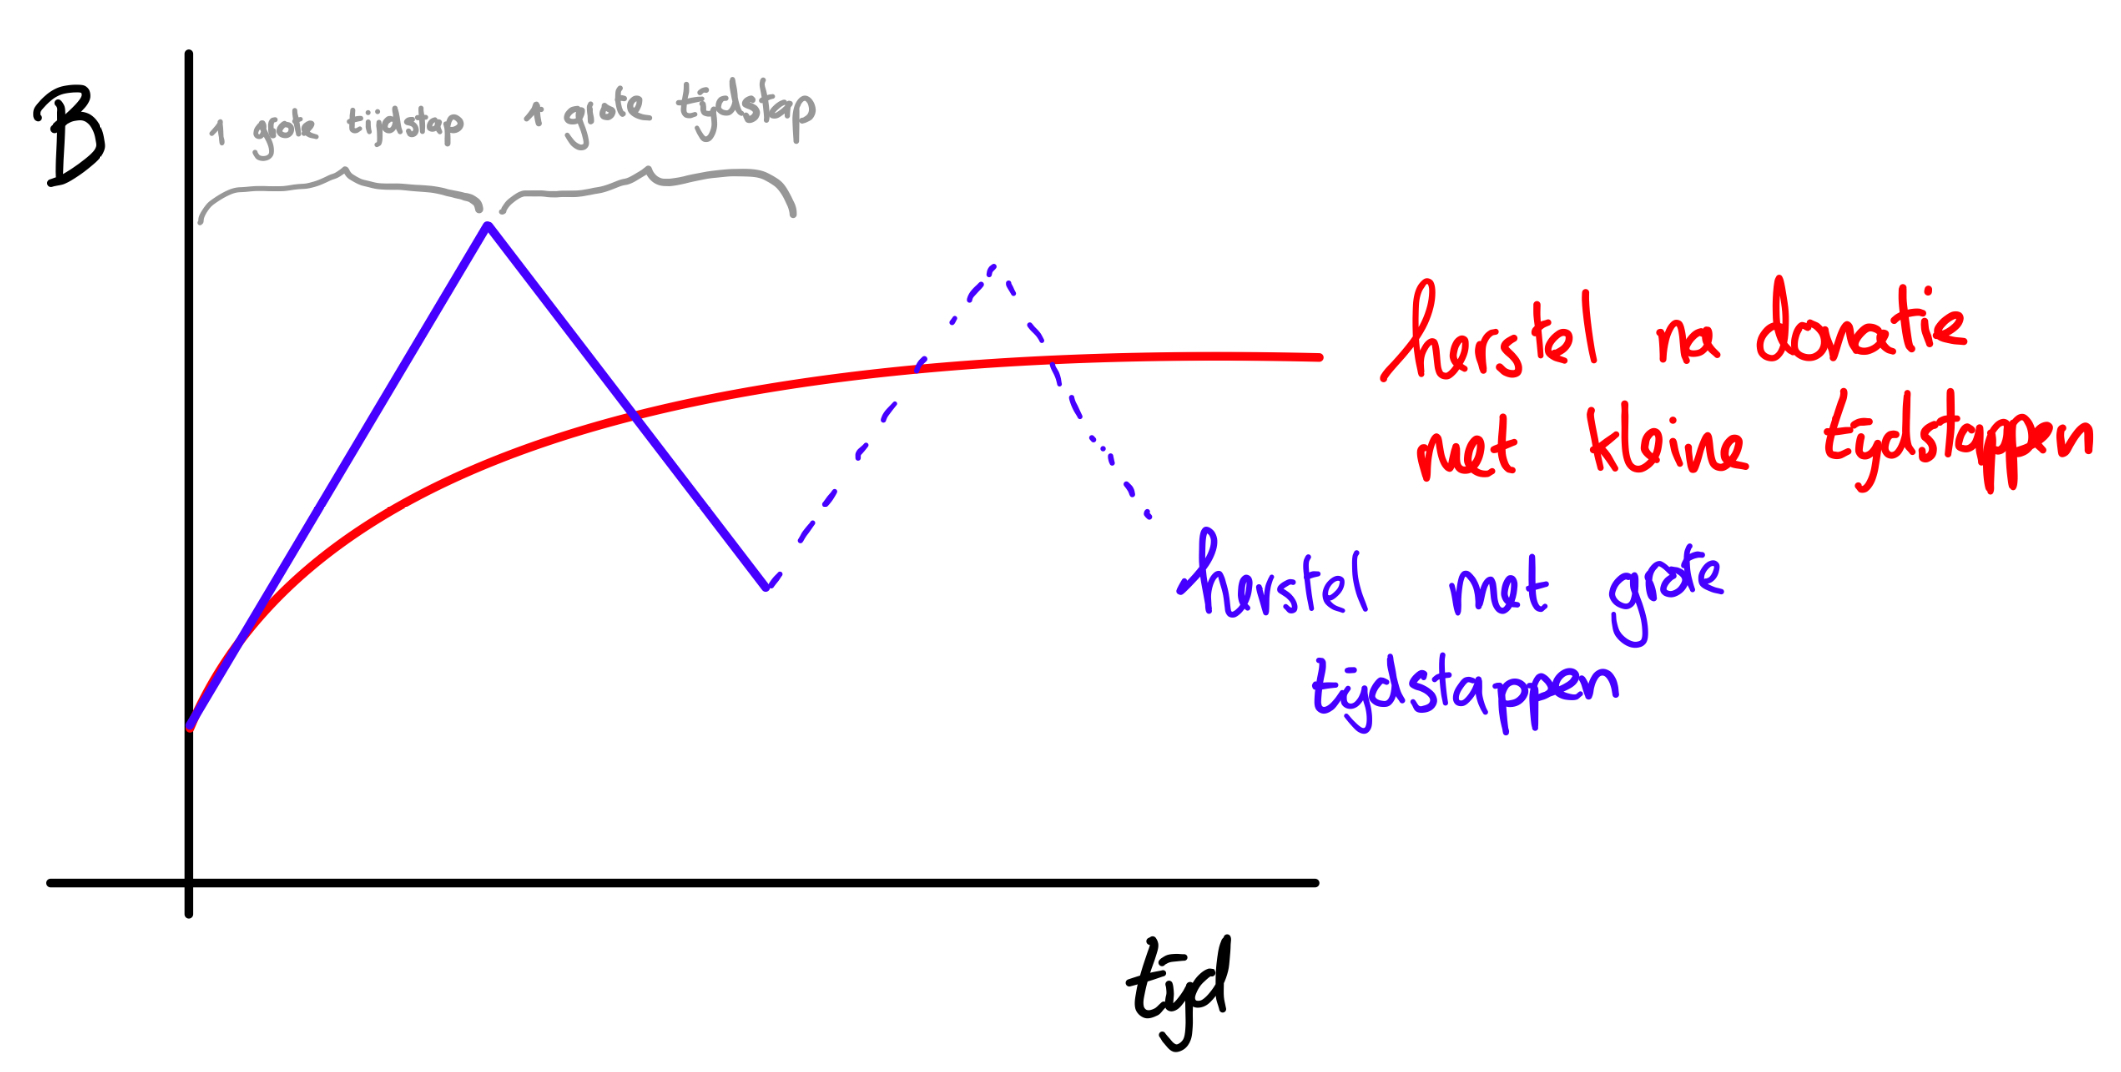 B
1 grote tijdstap
1 grote tijdstap
herstel na donatie
met kleine tijdstappen
herstel met grote
tijdstappen
tijd